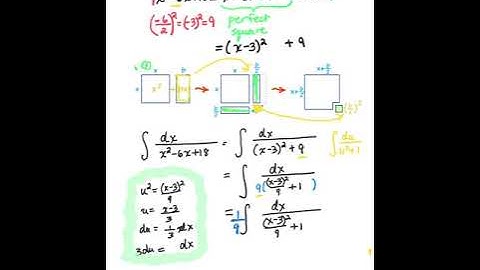 (-6/2)² = (-3)² = 9
perfect
square
= (x-3)² + 9
x b x b/2 x+b/2
x x² x x+b/2
(b/2)²
∫ dx/(x²-6x+18) = ∫ dx/((x-3)²+9) ∫ du/(u²+1)
= ∫ dx/(9((x-3)²/9 + 1))
= 1/9 ∫ dx/((x-3)²/9 + 1)
u² = (x-3)²/9
u = (x-3)/3
du = 1/3 dx
3du = dx